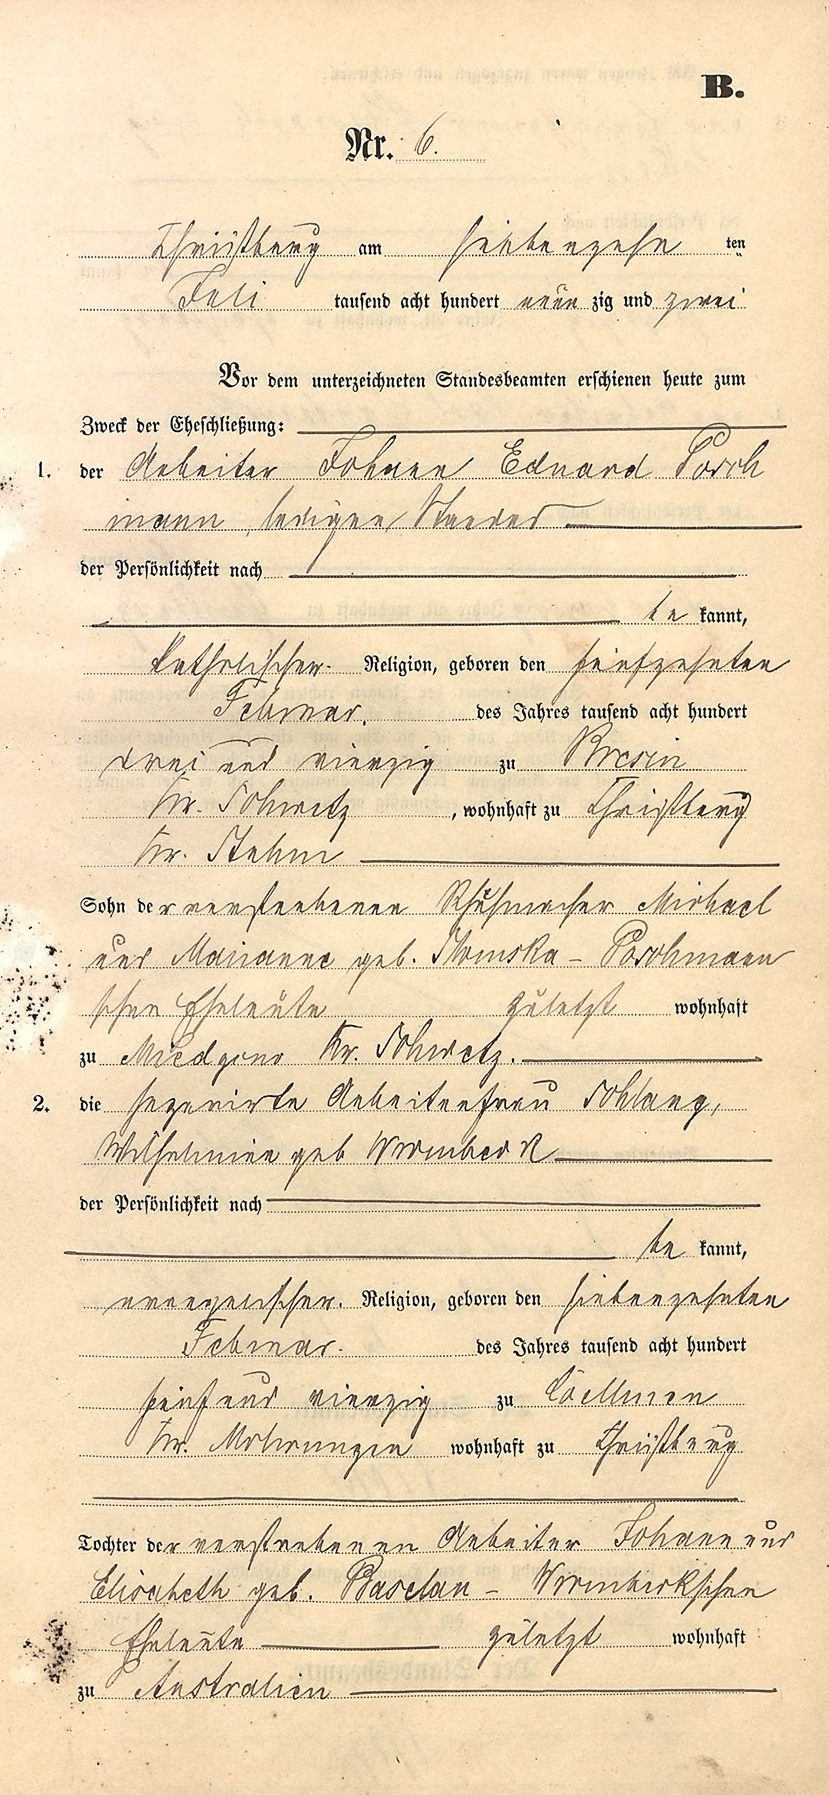 B.
Nr. 6.
Christburg am siebenzehnten
Juli tausend acht hundert neunzig und zwei
Vor dem unterzeichneten Standesbeamten erschienen heute zum
Zweck der Eheschließung:
1. der Arbeiter Johann Eduard Posch
mann, ledigen Standes
der Persönlichkeit nach
bekannt,
katholischer Religion, geboren den fünfzehnten
Februar des Jahres tausend acht hundert
drei und vierzig zu Bresin
Kr. Schwetz, wohnhaft zu Christburg
Kr. Stuhm
Sohn der verstorbenen Schuhmacher Michael
und Marianne geb. Poschmann
schen Eheleute zuletzt wohnhaft
zu Kr. Schwetz.
2. die separirte Arbeiterfrau Schlang,
Wilhelmine geb
der Persönlichkeit nach
bekannt,
evangelischer Religion, geboren den siebenzehnten
Februar des Jahres tausend acht hundert
fünf und vierzig zu
Kr. Mohrungen wohnhaft zu Christburg
Tochter der verstorbenen Arbeiter Johann und
Elisabeth geb.
Eheleute zuletzt wohnhaft
zu Australien